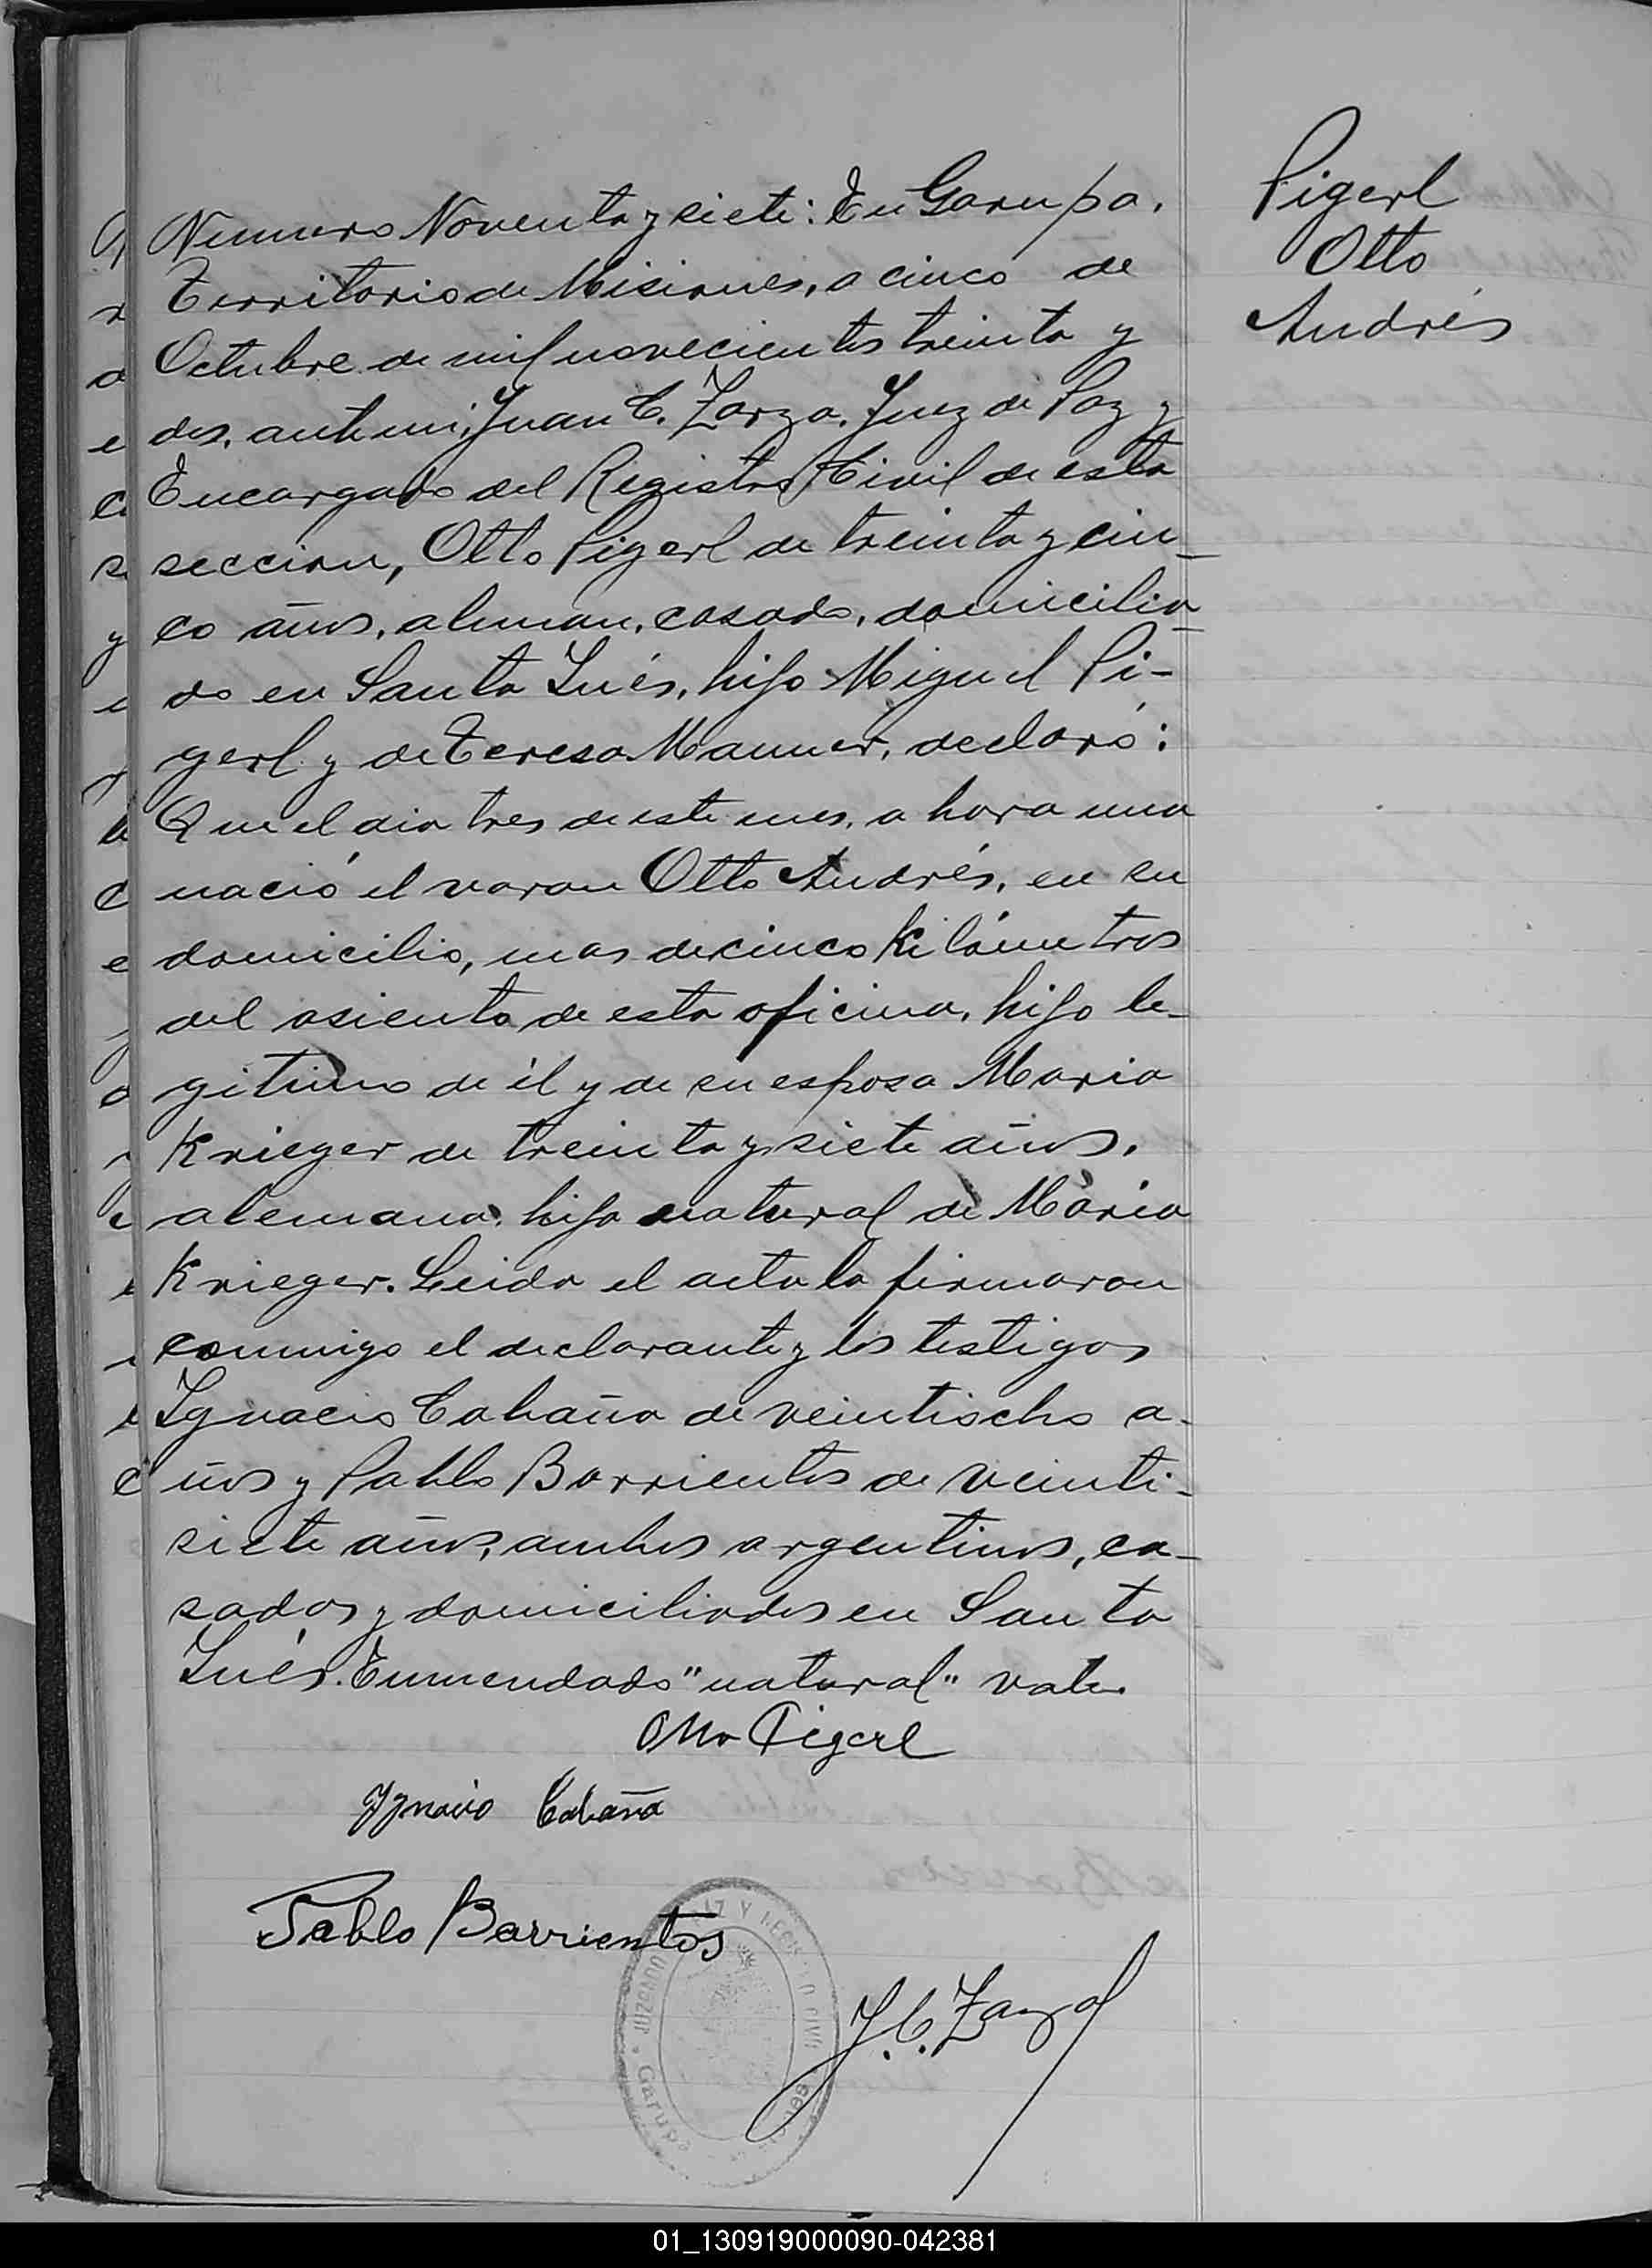 Pigerl
Otto
Andrés
Numero Noventa y siete: En Garupa,
Territorio de Misiones, a cinco de
Octubre de mil novecientos treinta y
dos, ante mi, Juan C. Zarza, Juez de Paz y
Encargado del Registro Civil de esta
seccion, Otto Pigerl de treinta y cin-
co años, aleman, casado, domicilia-
do en Santa Inés, hijo Miguel Pi-
gerl y de Teresa Manner, declaró:
Que el dia tres de este mes, a hora una
nació el varon Otto Andrés, en su
domicilio, mas de cinco Kilómetros
del asiento de esta oficina, hijo le-
gitimo de él y de su esposa Maria
Krieger de treinta y siete años,
alemana, hija natural de Maria
Krieger. Leida el acta la firmaron
conmigo el declarante y los testigos
Ignacio Cabaña de veintiocho a-
ños y Pablo Barrientos de veinti-
siete años, ambos argentinos, ca-
sados y domiciliados en Santa
Inés. Enmendado "natural" vale.
Otto Pigerl
Ygnacio Cabaña
Pablo Barrientos
J. C. Zarza
JUZGADO Garupá
01_130919000090-042381